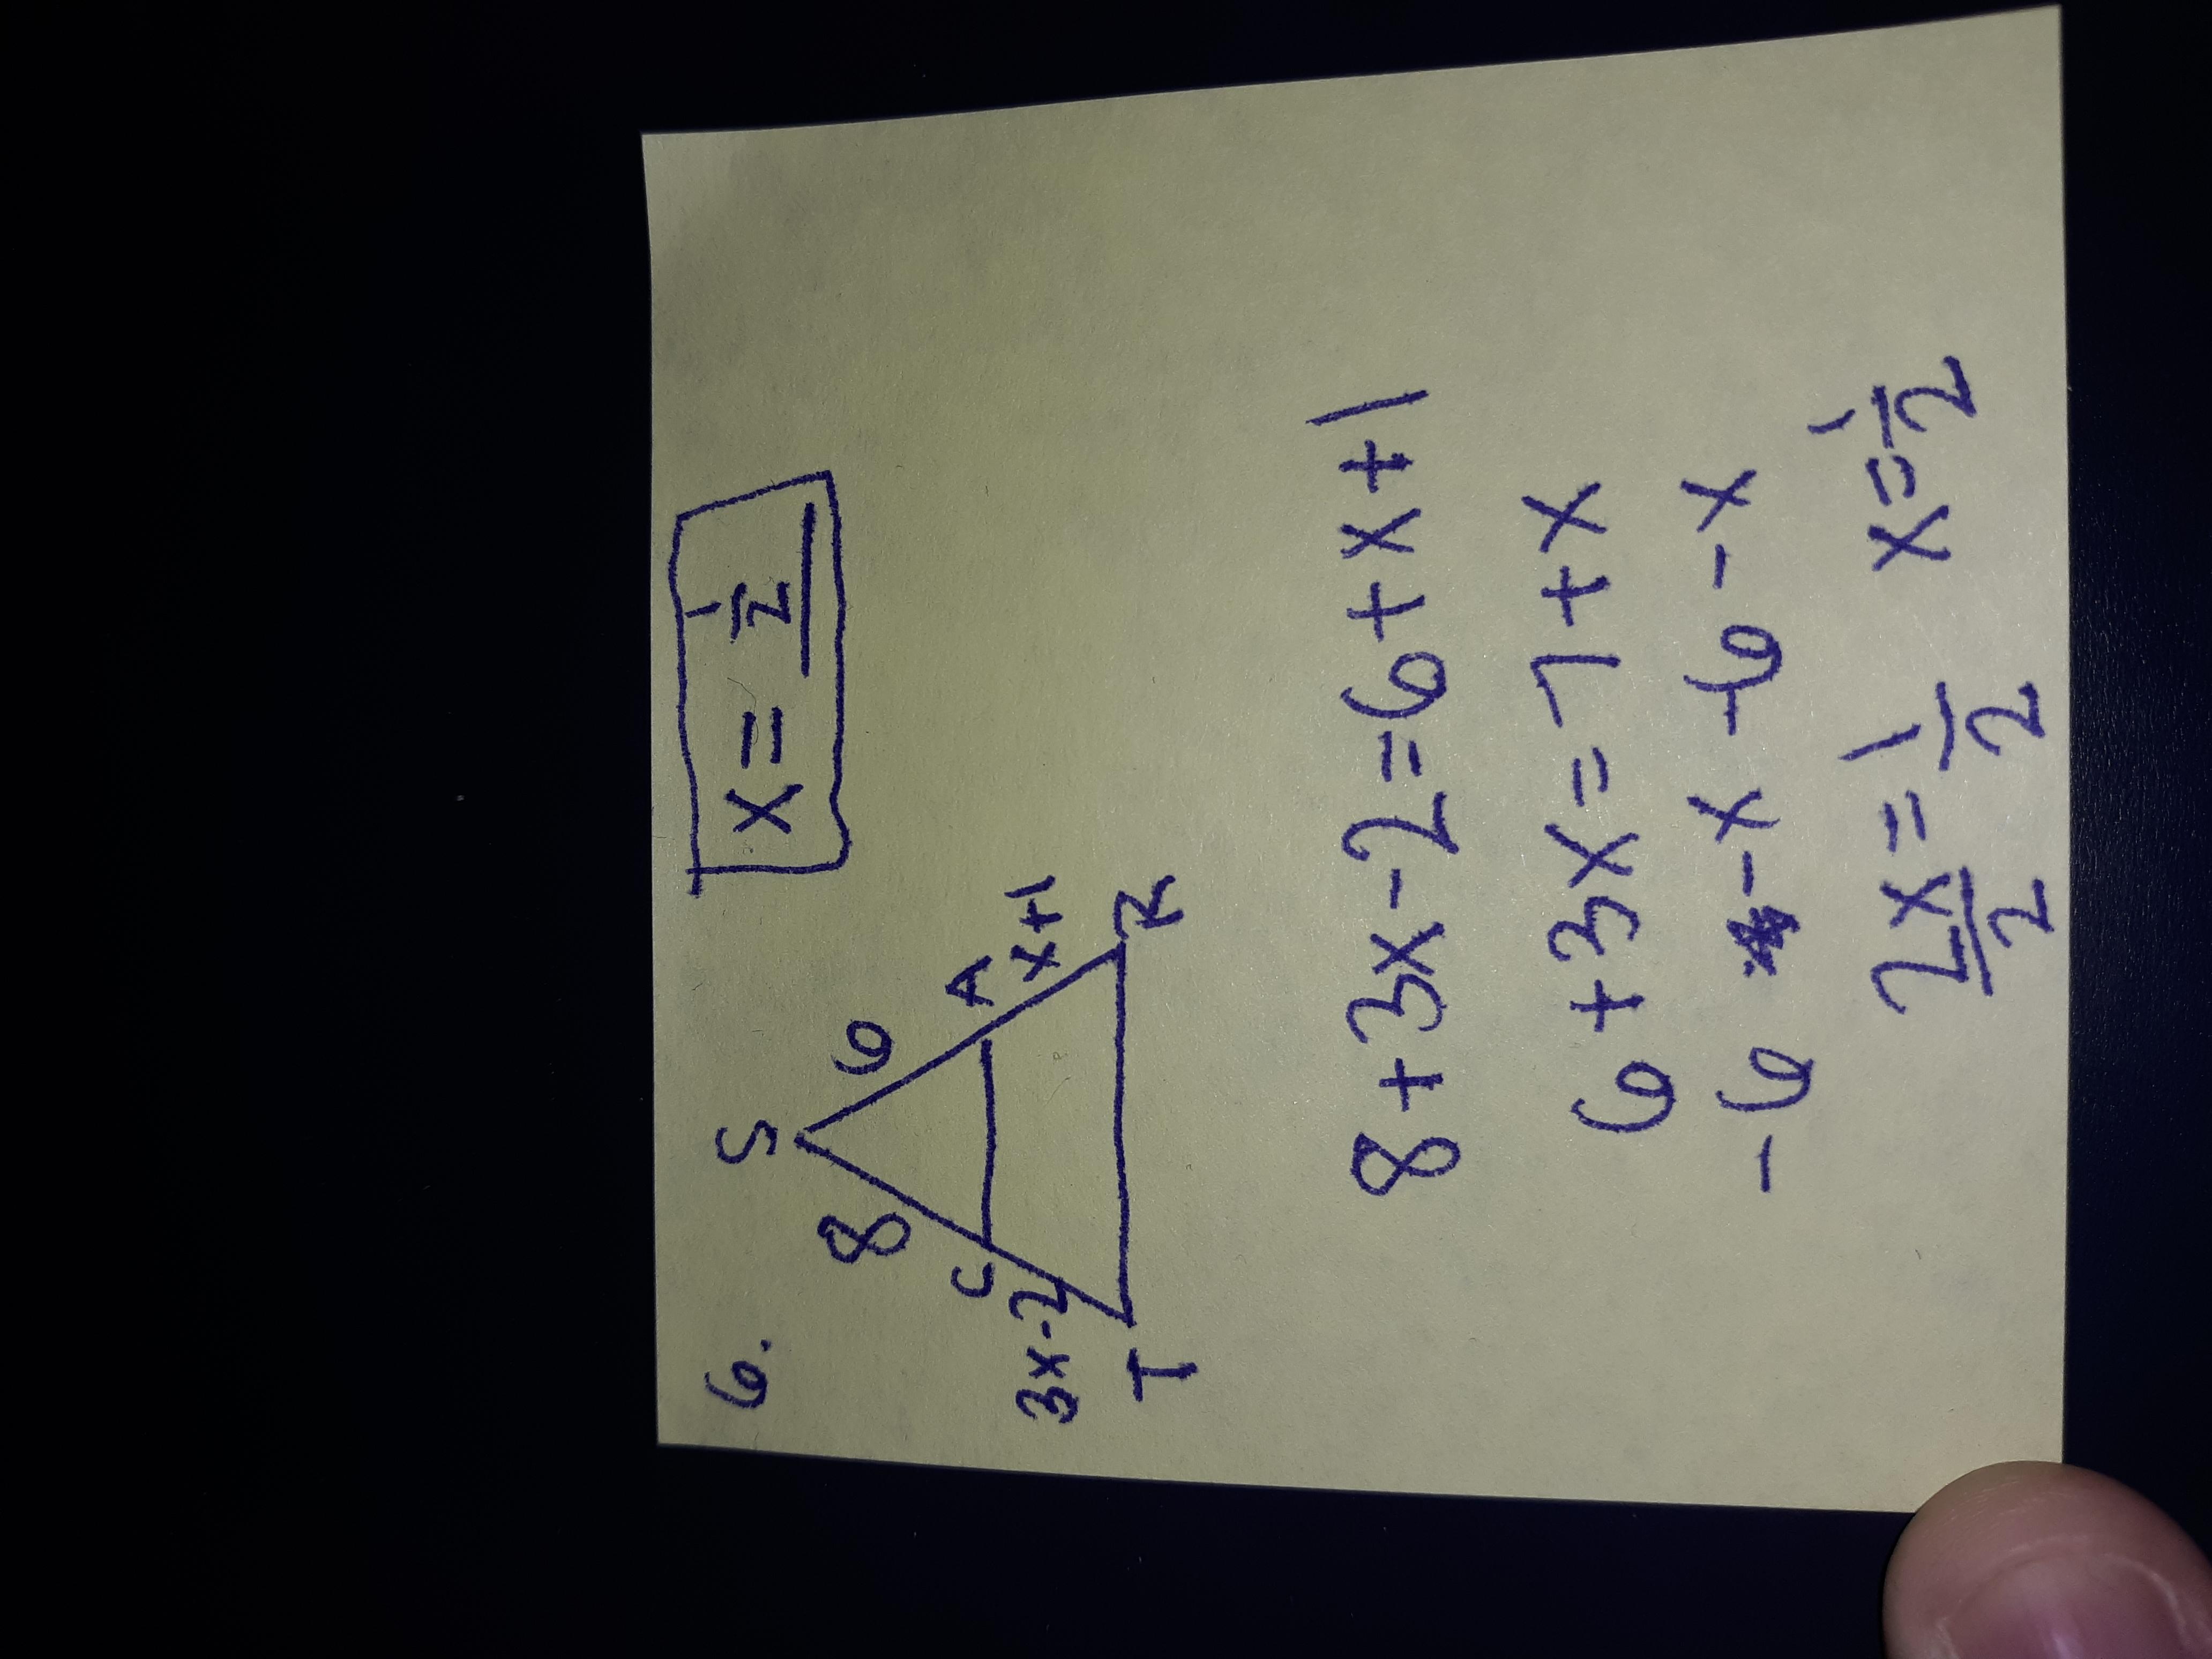 6.
x = 1/2
S
8 6
C A
3x-2 x+1
T R
8+3x-2=6+x+1
6+3x=7+x
-6 -x -6 -x
2x/2 = 1/2 x=1/2